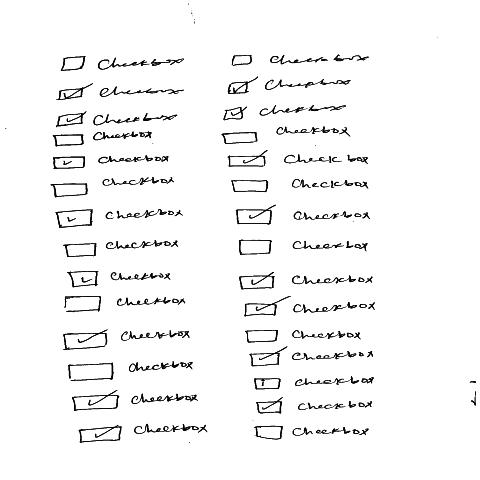 Checkbox
Checkbox
Checkbox
Checkbox
Checkbox
Checkbox
Checkbox
Checkbox
Checkbox
Checkbox
Checkbox
Checkbox
Checkbox
Checkbox
Check box
Checkbox
Checkbox
Checkbox
Check box
Checkbox
Checkbox
Checkbox
Checkbox
Checkbox
Checkbox
Checkbox
Checkbox
Checkbox
Checkbox